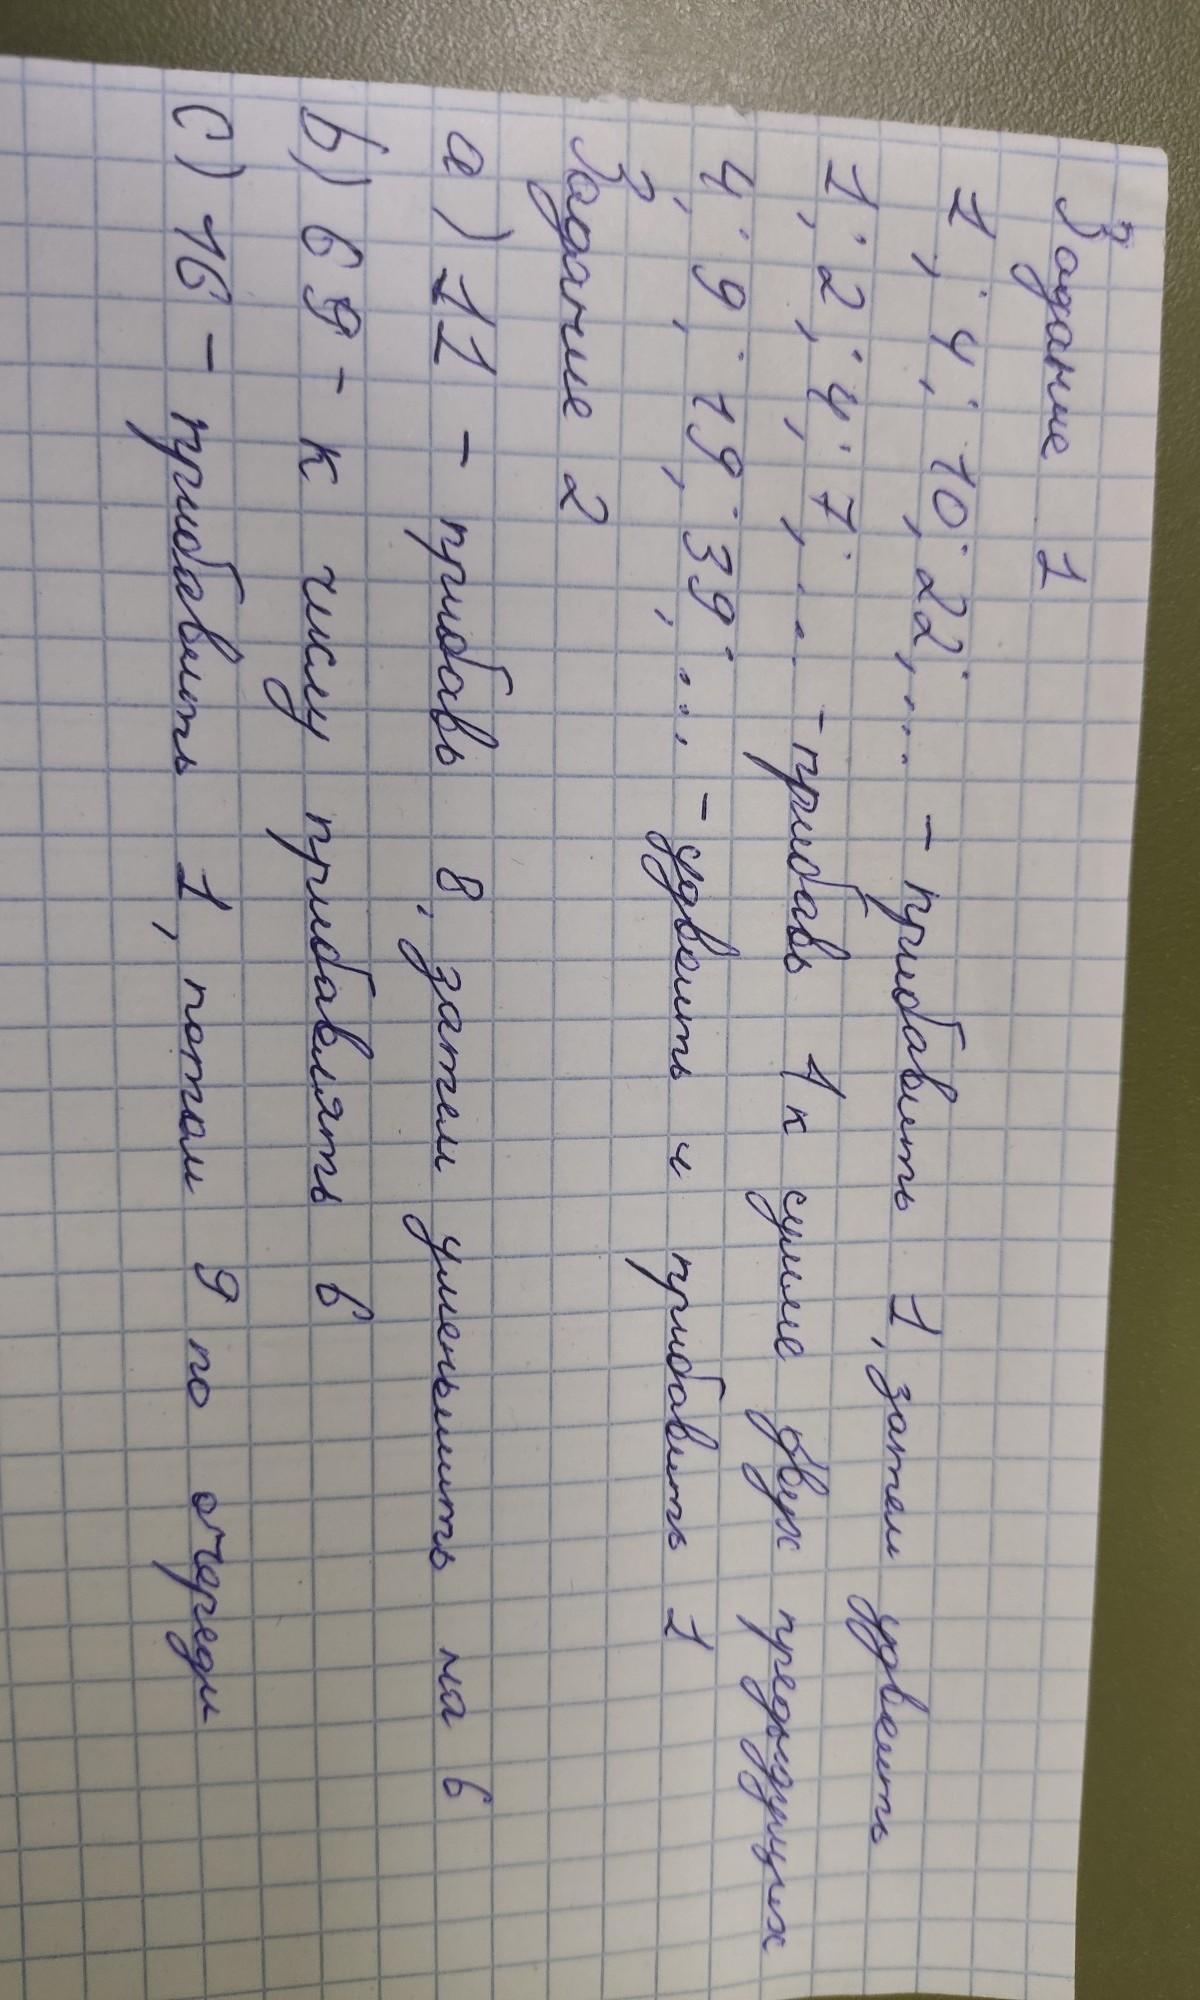 Задание 1
1; 4; 10; 22; ... - прибавить 1, затем удвоить
1; 2; 4; 7; ... - прибавь 1 к сумме двух предыдущих
4; 9; 19; 39; ... - удвоить и прибавить 1
Задание 2
а) 11 - прибавь 8, затем уменьшить на 6
b) 69 - к числу прибавлять 6
c) 16 - прибавить 1, потом 9 по очереди